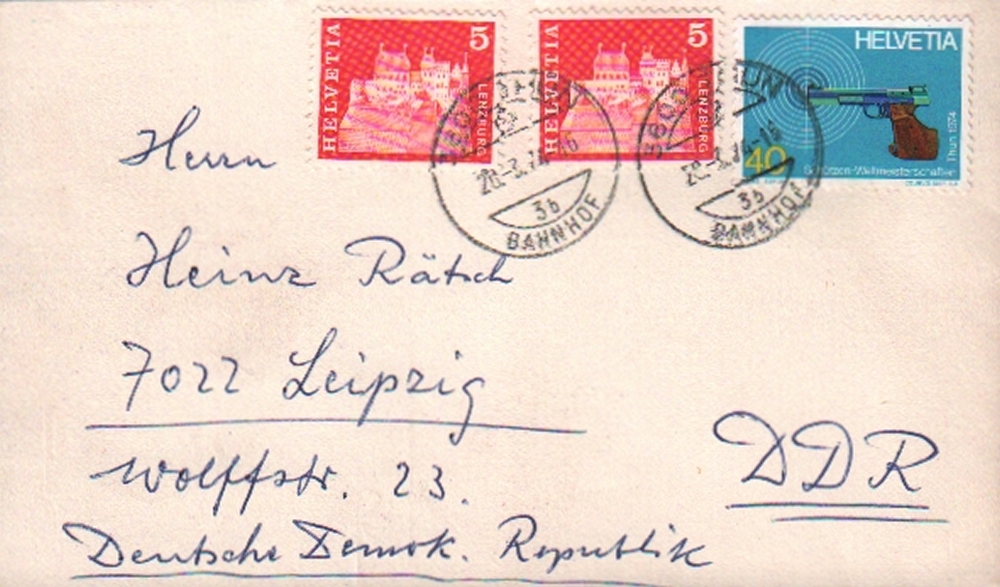 HELVETIA 5 LENZBURG
HELVETIA 5 LENZBURG
HELVETIA
40
Schützen-Weltmeisterschaften
Thun 1974
3b
BAHNHOF
3b
BAHNHOF
Herrn
Heinz Rätsch
7022 Leipzig
Wolffstr. 23.
DDR
Deutsche Demok. Republik